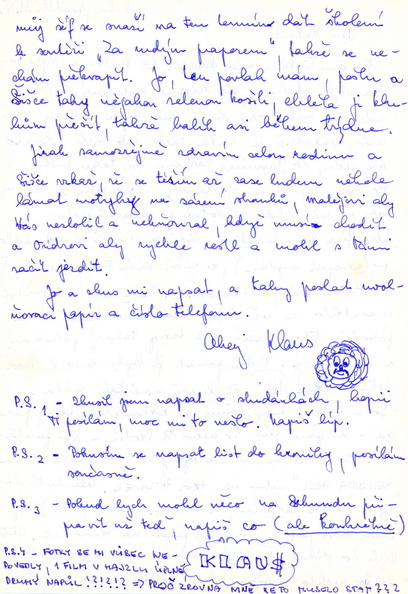 můj šéf se snaží na ten termín dát školení
k soutěži „Za rudým praporem“, takže se ne-
chám překvapit. Jo, ten povlak mám, pošlu a
Šišce taky nějakou zelenou košili, chtěla ji klu-
kům přešít, takže balík asi během týdne.
Jinak samozřejmě zdravím celou rodinu a
Šišce vzkaž, že se těším až zase budem někde
lámat motyky na sázení stromků, malejovi aby
Vás nezlobil a nehňoural, když musí chodit
a Ondrovi aby rychle rostl a mohl s Vámi
začít jezdit.
Jo a zkus mi napsat, a taky poslat uvol-
ňovací papír a číslo telefonu.
Ahoj Klaus
P.S. 1 - Zkusil jsem napsat o studánkách, kopii
Ti posílám, moc mi to nešlo. Napiš líp.
P.S. 2 - Pokusím se napsat list do kroniky, posílám
současně.
P.S. 3 - Pokud bych mohl něco na Sekundu při-
pravit už teď, napiš co (ale konkrétně)
P.S. 4 - FOTKY SE MI VŮBEC NE-
POVEDLY, 1 FILM V HAJZLU ÚPLNĚ,
DRUHÝ NAPŮL ?!?!?!? ⇒ PROČ ZROVNA MNE SE TO MUSELO STÁT ???
KLAU$